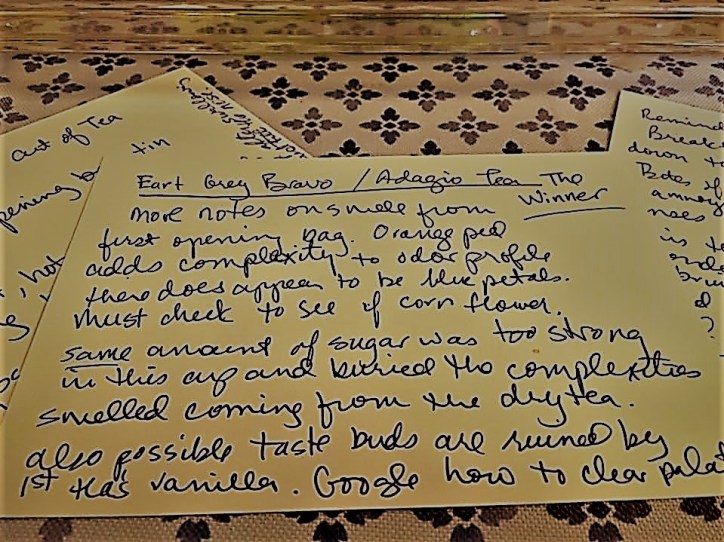 out of Tea
tin
pening
hot
Eart Grey Bravo / Adagio Tea The
Winner
more notes on smell from
first opening bag. Orange peel
adds complexity to odor profile
there does appear to be blue petals.
Must check to see if corn flower.
same amount of sugar was too strong
in this cup and burried the complexities
smelled coming from the dry tea.
also possible taste buds are ruined by
1st tea's vanilla. Google how to clear pala
Break
down to
is
?